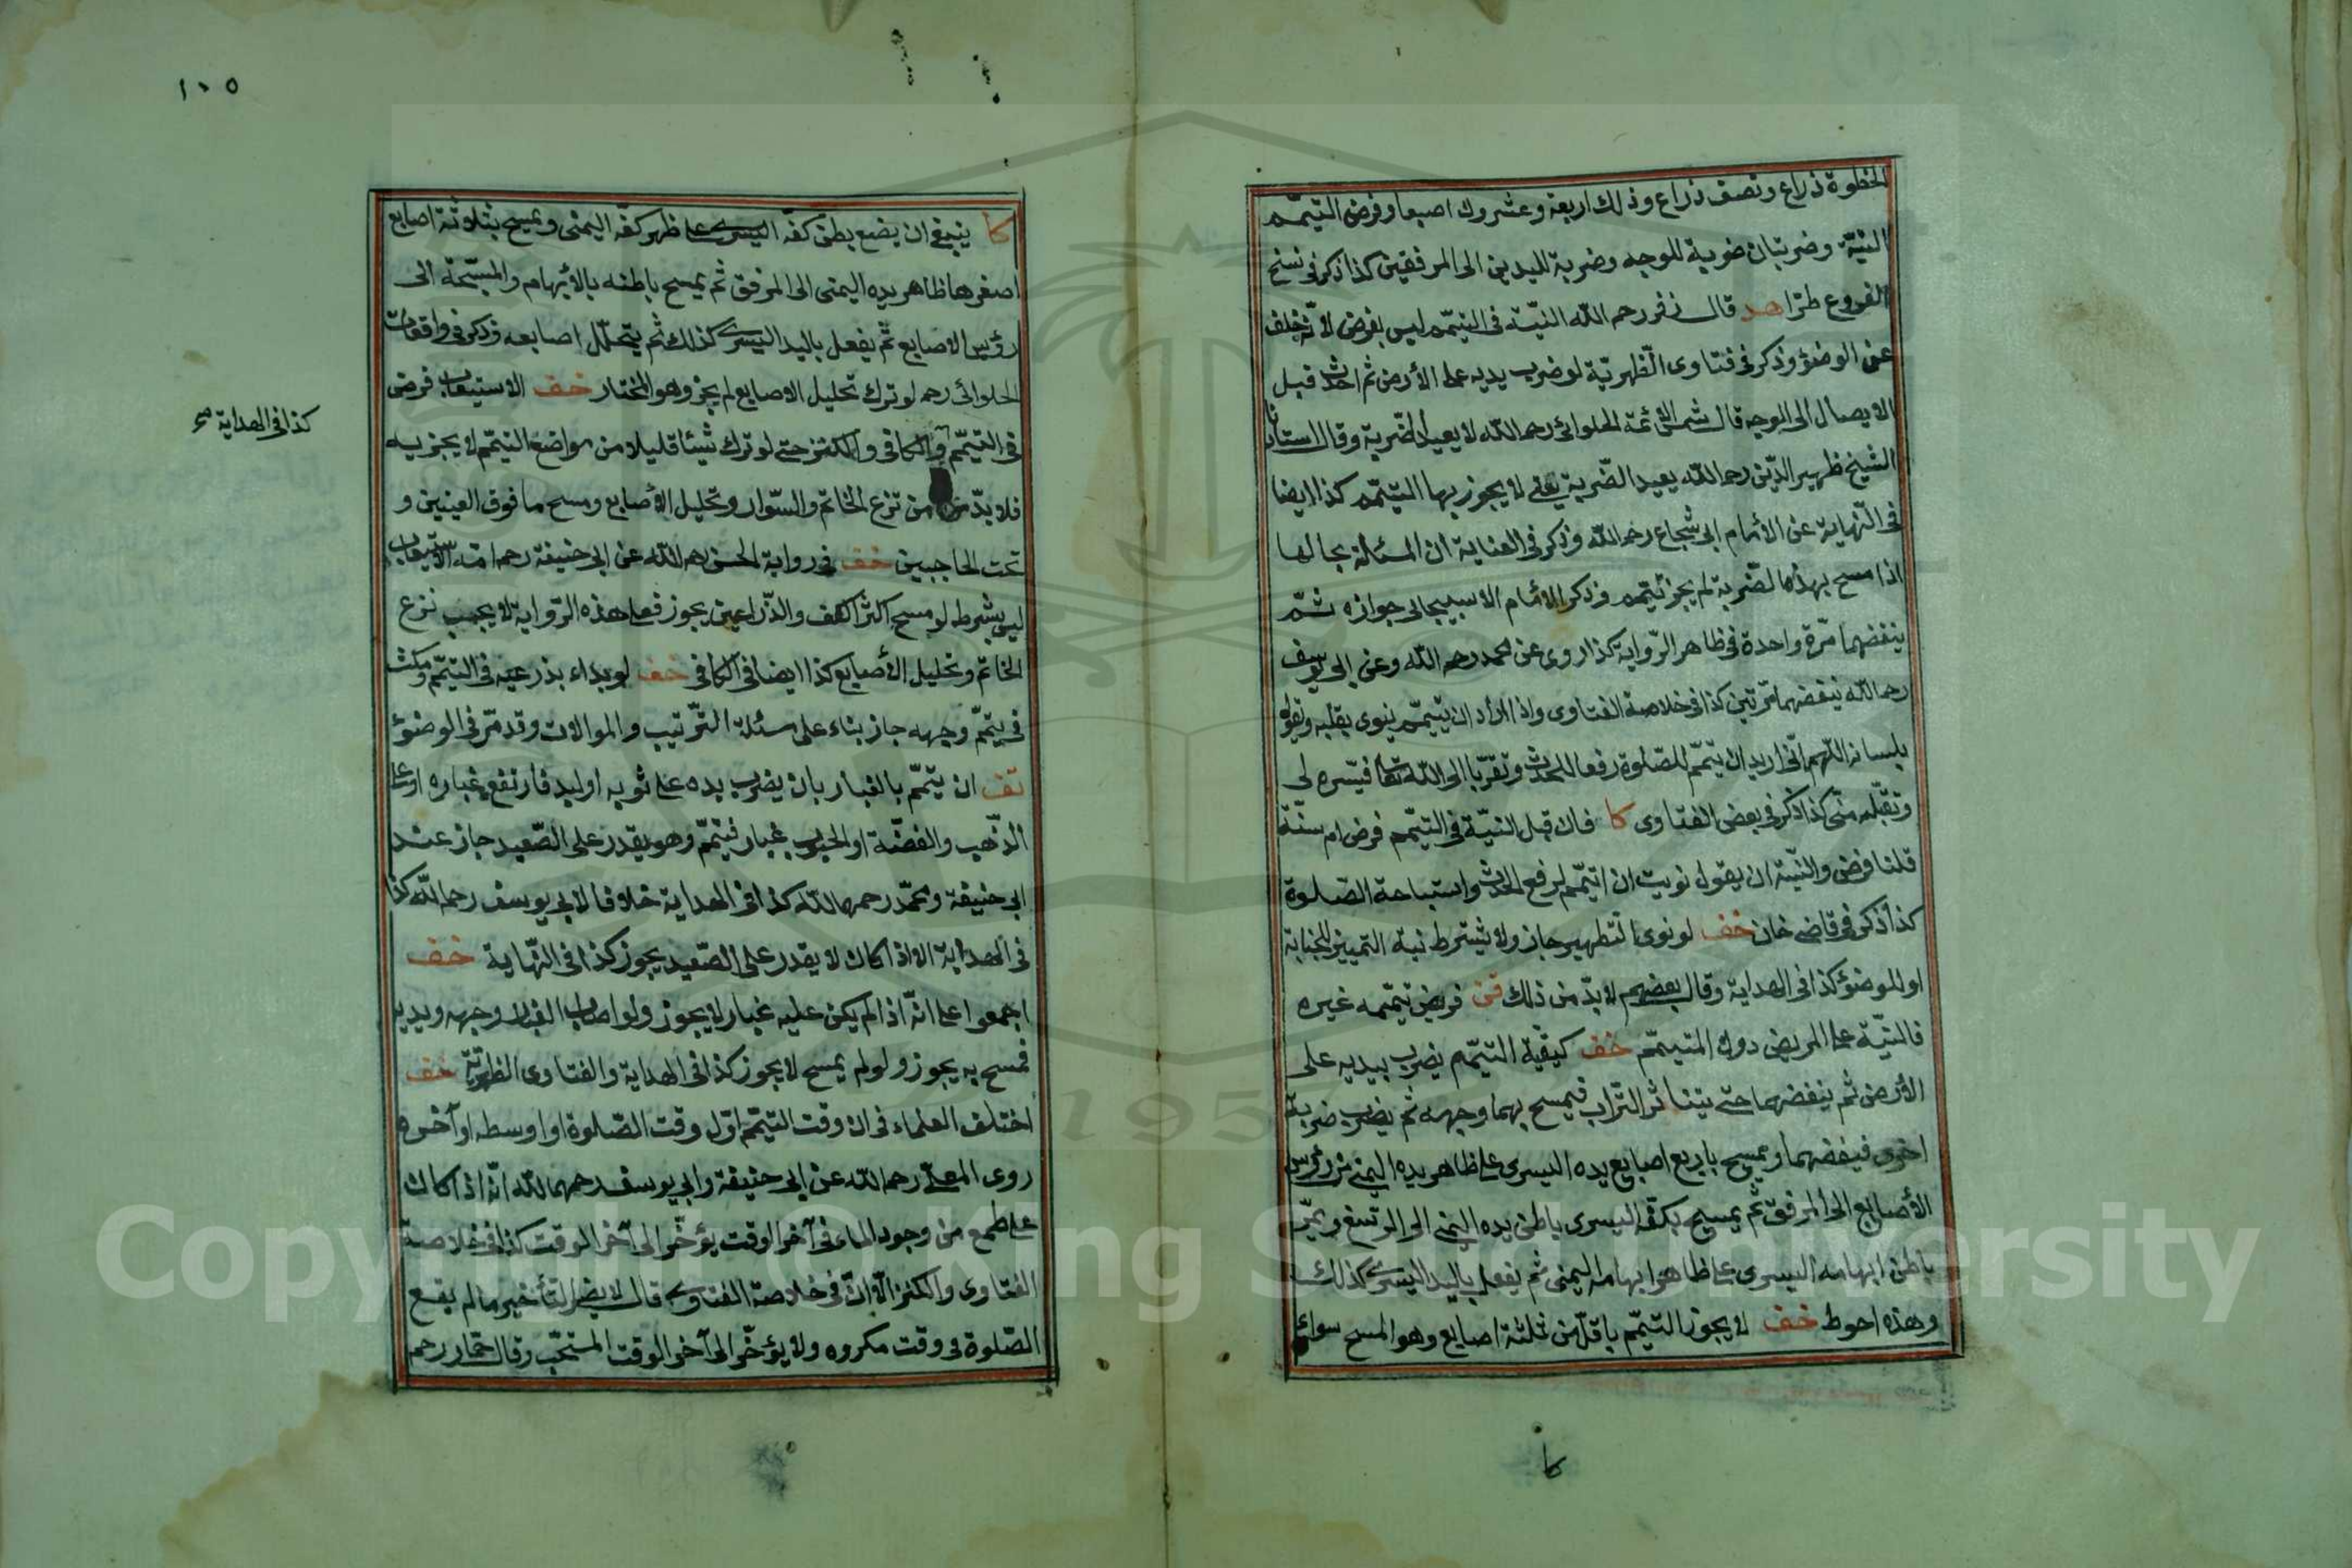 الخطوة ذراع ونصف ذراع وذلك اربعة وعشرون اصبعا وفرض التيمّم
النيّة وضربتان ضربة للوجه وضربة لليدين الى المرفقين كذا ذكر في نسخ
الفروع طرّا هد قال زفر رحمه الله النيّة في التيمّم ليس بفرض لانّه خلف
عن الوضوٴ وذكر في فتاوى الظهريّة لو ضرب يديه على الأرض ثم احدث قبل
الايصال الى الوجه قال شمس الائمة الحلوائى رحمه الله لا يعيد الضّربة وقال استاذنا
الشيخ ظهير الدّين رحمه الله يعيد الضّربة يعنى لا يجوز بها التيمّم كذا ايضا
في النّهاية عن الامام ابى شجاع رحمه الله وذكر في العناية ان المسئلة بحالها
اذا مسح بهذه الضّربة لم يجز تيمّمه وذكر الامام الاسبيجابى جوازه ثمّ
ينفضهما مرّة واحدة في ظاهر الرّواية كذا روى عن محمد رحمه الله وعن ابى يوسف
رحمه الله ينفضهما مرّتين كذا في خلاصة الفتاوى واذا اراد ان يتيمّم ينوى بقلبه ويقول
بلسانه اللّهم انّى اريد ان يتيمّم للصّلوة رفعا للحدث وتقرّبا الى الله تعا فيسّره لى
وتقبّله منّى كذا ذكر في بعض الفتاوى كا فان قيل النيّة في التيمّم فرض ام سنّة
قلنا فرض والنّيّة ان يقول نويت ان اتيمّم لرفع الحدث واستباحة الصّلوة
كذا ذكر في قاضى خان خف لو نوى التطهير جاز ولا يشترط نية التمييز للجنابة
او للوضوٴ كذا في الهداية وقال بعضهم لا بدّ من ذلك قن مريض تيمّمه غيره
فالنيّة على المريض دون المتيمّم خف كيفيّة التيمّم يضرب بيديه على
الأرض ثم ينفضهما حتى يتناثر التّراب فيمسح بهما وجهه ثم يضرب ضربة
اخرى فينفضهما ويمسح باربع اصابع يده اليسرى على ظاهر يده اليمنى من رؤس
الأصابع الى المرفق ثم يمسح بكفّه اليسرى باطن يده اليمنى الى الرّسغ ويمرّ
باطن ابهامه اليسرى على ظاهر ابهامه اليمنى ثم يفعل باليد اليسرى كذلك
وهذه احوط خف لا يجوز التيمّم باقلّ من ثلثة اصابع وهو المسح سواء
كا
١٠٥
كا ينبغى ان يضع بطن كفّه اليسرى على ظهر كفّه اليمنى ويمسح بثلاوثة اصابع
اصغرها ظاهر يده اليمنى الى المرفق ثم يمسح باطنه بالأبهام والمسبّحة الى
رؤس الاصابع ثم يفعل باليد اليسرى كذلك ثم يتخلّل اصابعه وذكر في واقعات
الحلوائى رحمه لو ترك تخليل الاصابع لم يجز وهو المختار خف الاستيعاب فرض
في التيمّم والكافى والكنز حتى لو ترك شيئا قليلا من مواضع التيمّم لا يجزيه
فلا بدّ من نزع الخاتم والسّوار وتخليل الأصابع ومسح ما فوق العينين و
تحت الحاجبين خف في رواية الحسن رحمه الله عن ابى حنيفة رحمه الله الاستيعاب
ليس بشرط لو مسح اكثر الكف والذّراعين يجوز فعلى هذه الرّواية لا يجب نزع
الخاتم وتخليل الأصابع كذا ايضا في الكافى خف لو بداء بذرعيه في التيمّم ومكث
في تيمّم وجهه جاز بناء على مسئلة التّرتيب والموالات وقد مرّ في الوضوٴ
تف ان تيمّم بالغبار بان يضرب يده على ثوبه او لبد فارتفع غباره او على
الذّهب والفضّة او الحبوب غبار فتيمّم وهو يقدر على الصّعيد جاز عند
ابى حنيفة ومحمّد رحمهما الله كذا في الهداية خلافا لابى يوسف رحمه الله كذا
في الهداية الا اذا كان لا يقدر على الصّعيد يجوز كذا في النّهاية خف
اجمعوا على انّه اذا لم يكن عليه غبار لا يجوز ولو اصاب الغبار وجهه ويديه
فمسح به يجوز ولو لم يمسح لا يجوز كذا في الهداية والفتاوى الظهريّة خف
اختلف العلماء في ان وقت التيمّم اوّل وقت الصّلوة او اوسطه او آخره
روى المعلّى رحمه الله عن ابى حنيفة وابى يوسف رحمهما الله انّه اذا كان
على طمع من وجود الماء في آخر الوقت يؤخّر الى آخر الوقت كذا في خلاصة
الفتاوى والكنز الّا انّ في خلاصة الفتاوى قال لا يضرّ التأخير ما لم يقع
الصّلوة في وقت مكروه ولا يؤخّر الى آخر الوقت المستحبّ وقال حمّاد رحمه
كذا في الهداية صح
Copyright © King Saud University
195